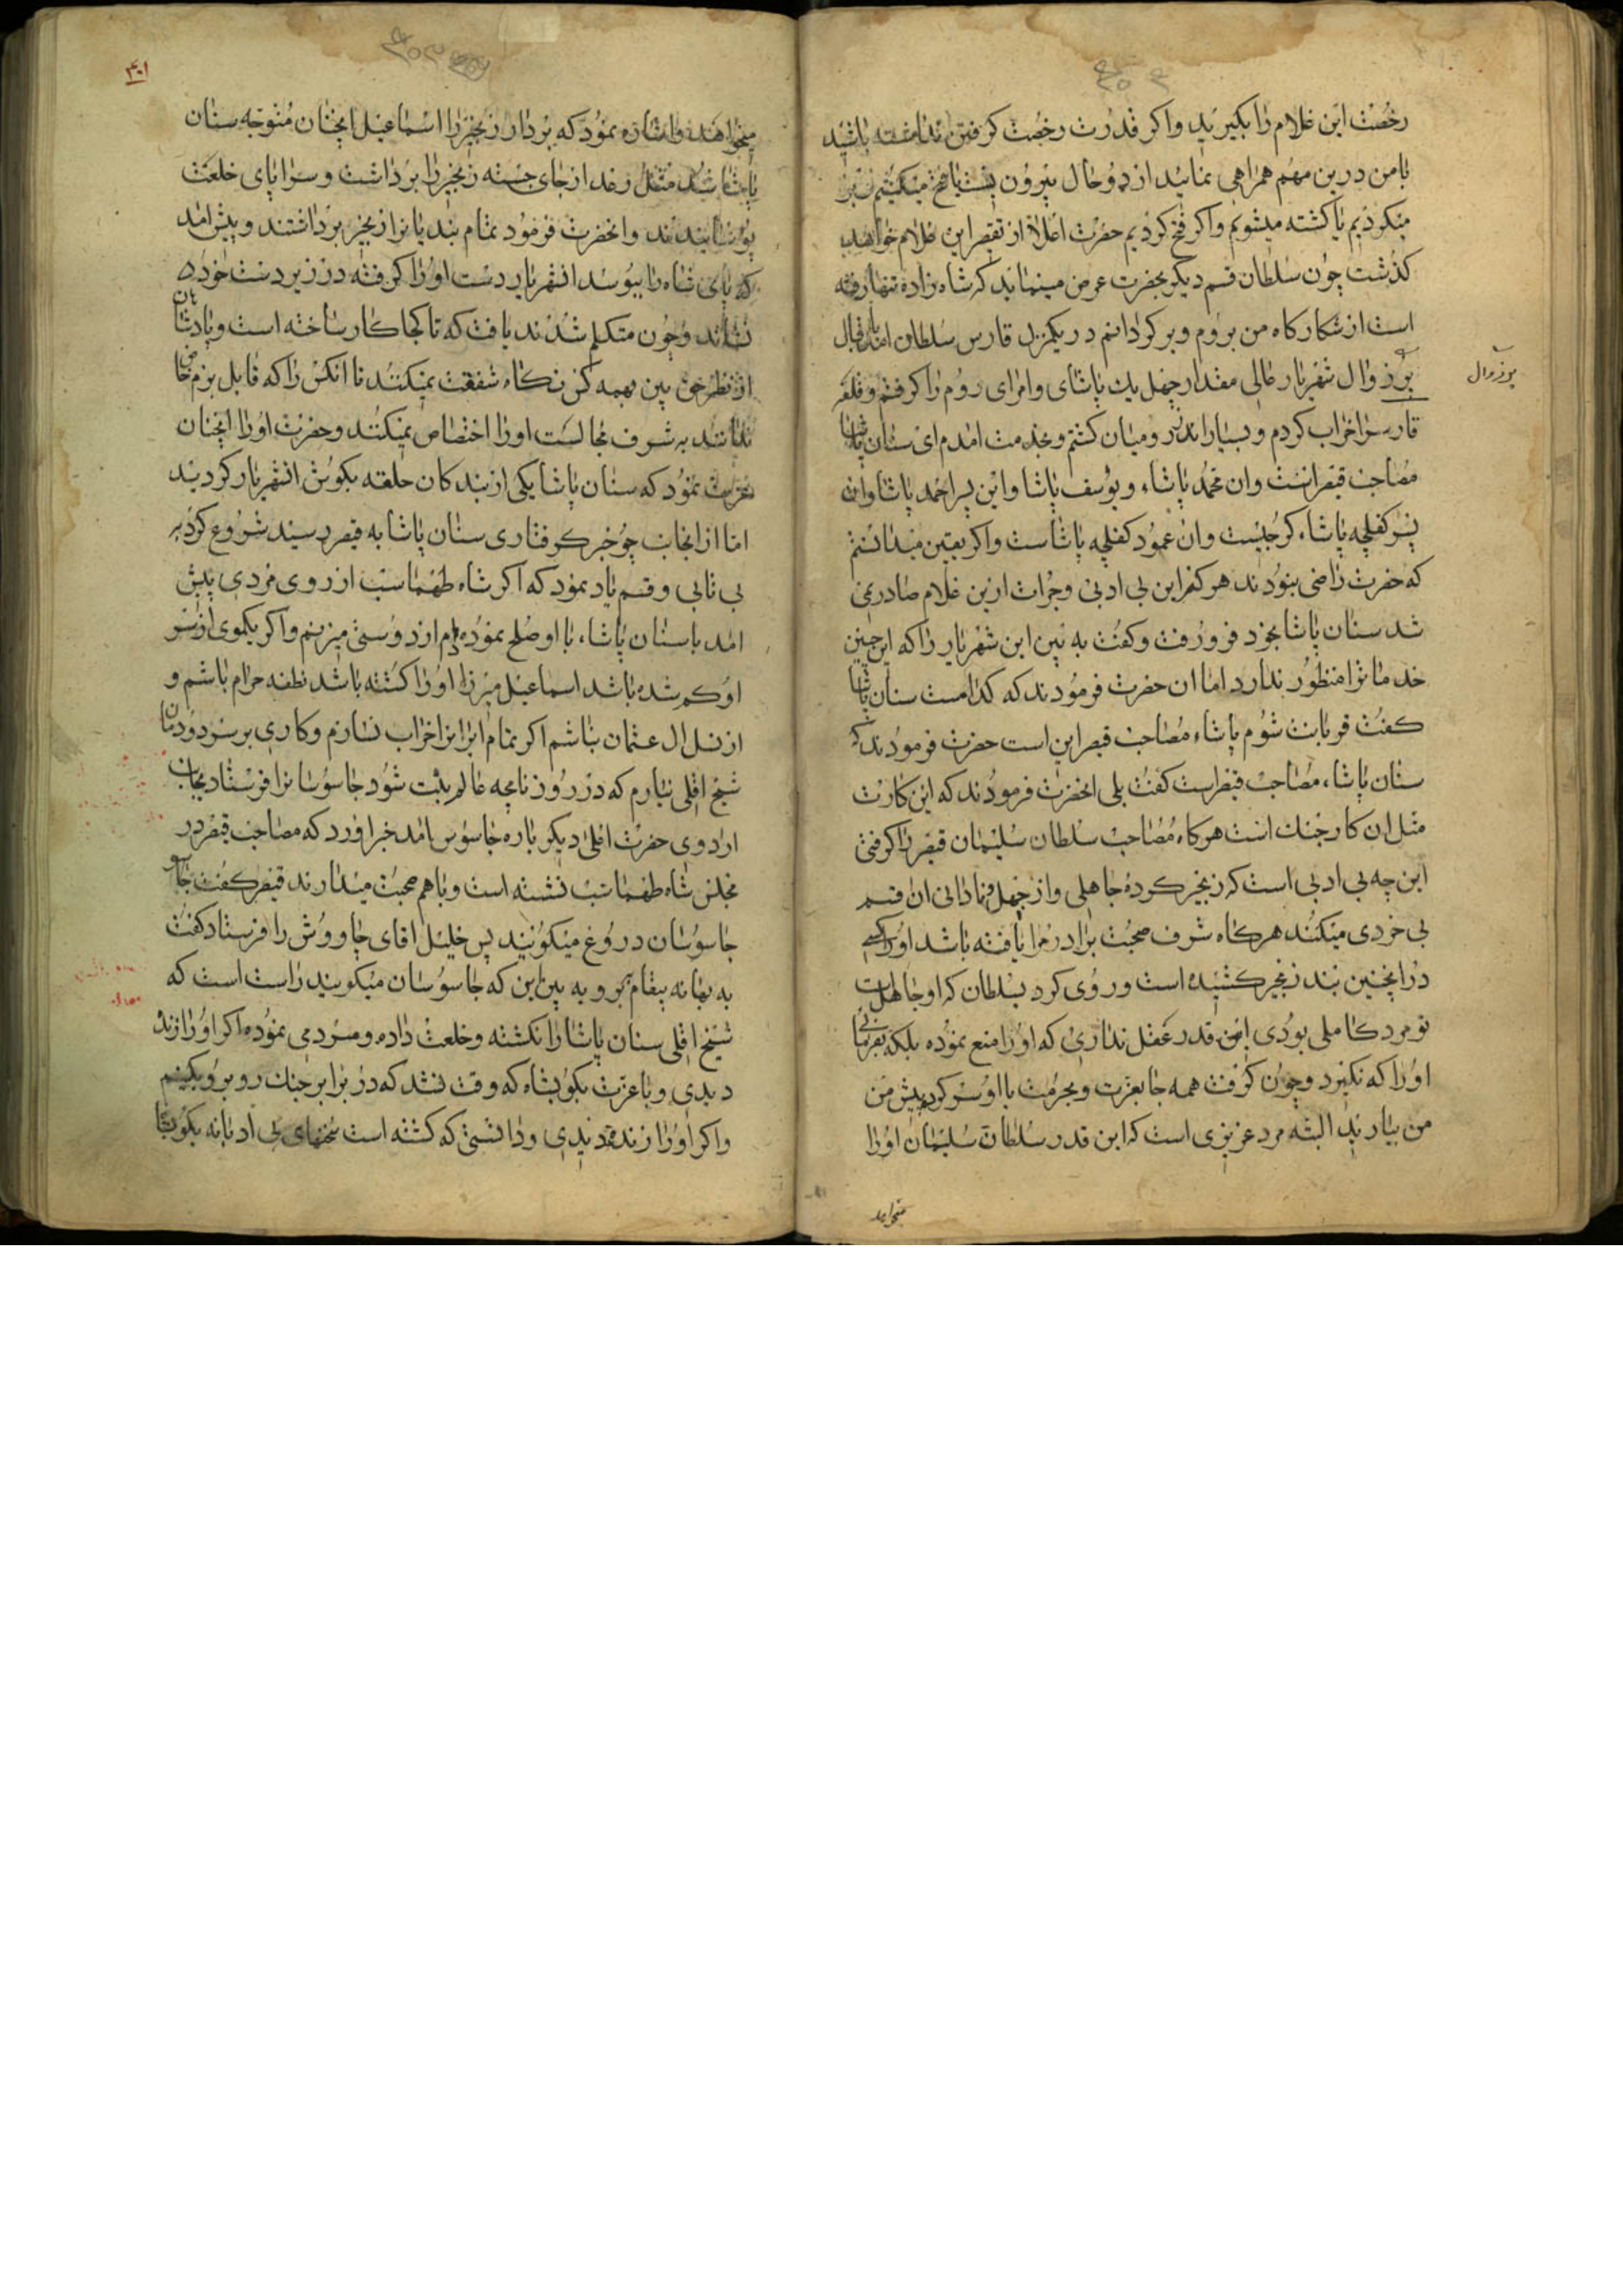 رخصت این غلام را بکیرید واکر قدرت رخصت کرفتن نداشته باشید
بامن درین مهم همراهی نمائید از دو حال بیرون نیست یا فتح میکنیم
میکردیم یا کشته میشویم واکر فتح کردیم حضرت اعلا از تقصیر این غلام خواهند
کذشت چون سلطان قسم دیکر بحضرت عرض مینماید که شاه زاده تنها رفته
است از شکارکاه من بروم وبرکردانم در یکمنزل قارس سلطان امدند
بی زوال شهریار عالی مقدار چهل یك پاشای وامرای روم را کرفتم وقلعه
قارس را خراب کردم و بسیار از رومیان کشتم و بخدمت امدم ای سنان پاشا
مصاحب قیصر است وان محمد پاشاء ویوسف پاشا واین پسر احمد پاشا وان
پسر کفلچه پاشاء کرجیست وان عمود کفلچه پاشاست واکر یقین میدانستم
که حضرت راضی نبودند هرکز این بی ادبی وجرات ازین غلام صادر نمی
شد سنان پاشا بخود فرورفت وکفت به بین این شهریار را که این چنین
خدماترا منظور ندارد اما ان حضرت فرمودند که کدامست سنان پاشا
کفت قربانت شوم پاشاء مصاحب قیصر این است حضرت فرمودند که
سنان پاشاء مصاحب قیصر است کفت بلی انحضرت فرمودند که این کارت
مثل ان کار جنك است هرکاه مصاحب سلطان سلیمان قیصر را کرفتی
این چه بی ادبی است که زنجیر کرده جاهلی واز جهل ونادانی ان قسم
بی خردی میکنند هرکاه شرف صحبت برادر مرا یافته باشد اورا کسی
در اینچنین بند زنجیر کشیده است وروی کرد بسلطان که او جاهل است
تو مرد کاملی بودی این قدر عقل نداری که اورا منع نموده بلکه بفرمائی
اورا که نکیرد وچون کرفت همه جا بعزت وبحرمت با او سر کرد پیش من
من بیارید البته مرد عزیزی است که این قدر سلطان سلیمان اورا
میخواهد
بی زوال
۴۰۱
میخواهند واشاره نمود که بردار زنجیر را اسماعیل انچنان متوجه سنان
پاشا شد مثل رعد از جای جسته زنجیر را برداشت وسراپای خلعت
پوشانیدند وانحضرت فرمود تمام بندیانرا زنجیر برداشتند وپیش امد
که پای شاه را ببوسد انشهریار دست اورا کرفته در زیر دست خود
نشاند وچون متکلم شدند یافت که تا کجا کار ساخته است وپادشاهان
از نظر حق بین بهمه کس نکاه شفقت نمیکنند تا انکس را که قابل بزم خاص
ندانند به شرف مجالست اورا اختصاص نمیکنند وحضرت اورا انچنان
عزت نمود که سنان پاشا یکی از بندکان حلقه بکوش انشهریار کردید
اما از انجانب چو خبر کرفتاری سنان پاشا به قیصر رسید شروع کرد به
بی تابی وقسم یاد نمود که اکر شاه طهماسب از روی مردی پیش
امد با سنان پاشاء با او صلح نموده دم از دوستی میزنم واکر یکموی از سر
او کم شده باشد اسماعیل میرزا اورا کشته باشد نطفه حرام باشم و
از نسل ال عثمان نباشم اکر تمام ایرانرا خراب نسازم وکاری بر سر دودمان
شیخ اقلی نیارم که در روزنامچه عالم ثبت شود جاسوسانرا فرستاد بجانب
اردوی حضرت اعلی دیکر باره جاسوس امد خبر اورد که مصاحب قیصر در
مجلس شاه طهماسب نشسته است وباهم صحبت میدارند قیصر کفت
جاسوسان دروغ میکوئیند پس خلیل اقای جاووش را فرستاد کفت
به بهانه پیغام برو به بین این که جاسوسان میکویند راست است که
شیخ اقلی سنان پاشا را نکشته وخلعت داده ومردمی نموده اکر اورا زنده
دیدی وباعزت بکو بشاه که وقت نشد که در برابر جنك روبرو بکنیم
واکر اورا زنده ندیدی ودانستی که کشته است سخنهای بی ادبانه بکو بشاه